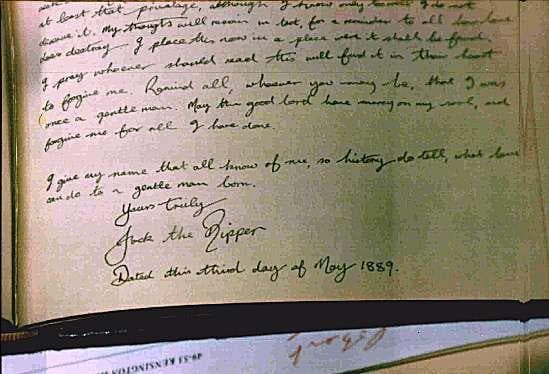 at least that privalage, although I know only                I do not
deserve it. My thoughts will remain in tact, for a reminder to all how love
does destroy. I place this now in a place were it shall be found.
I pray whoever should read this will find it in their heart
to forgive me. Remind all, whoever you may be, that I was
once a gentle man. May the good lord have mercy on my soul, and
forgive me for all I have done.
I give my name that all know of me, so history do tell, what love
can do to a gentle man born.
Yours truly
Jack the Ripper
Dated this third day of May 1889.
49-53 KENSINGTON